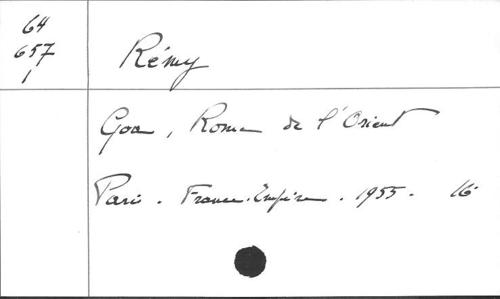 64
657
1
Rémy
Goa, Rome de l'Orient
Paris. France-Empire. 1955. 16°